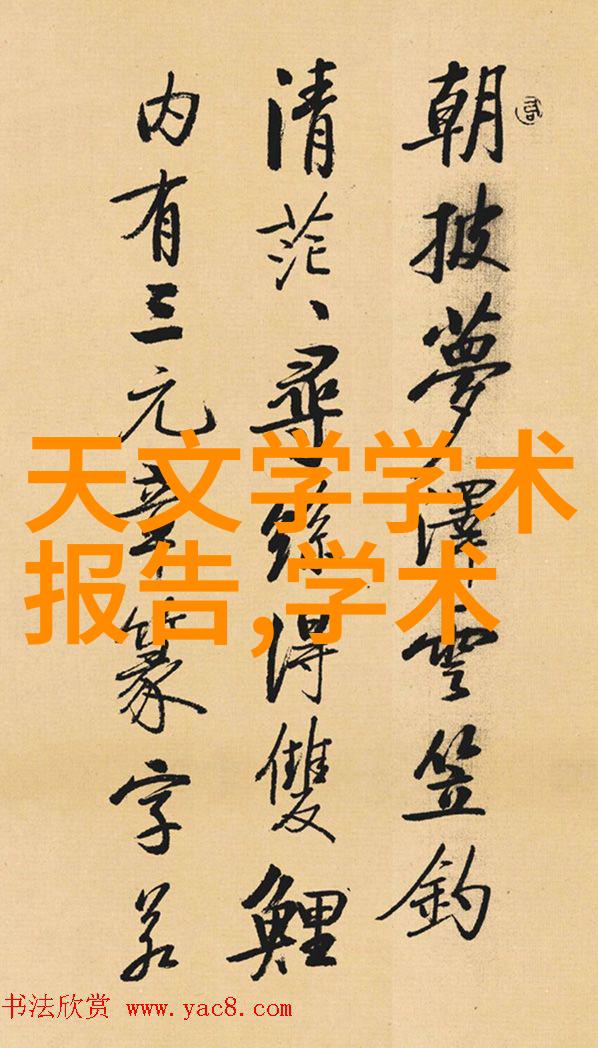 朝披夢澤雲笠釣
清茫、尋絲得雙鯉
内有三元章篆字若
天文学学术
报告,学术
书法欣赏 www.yac8.com